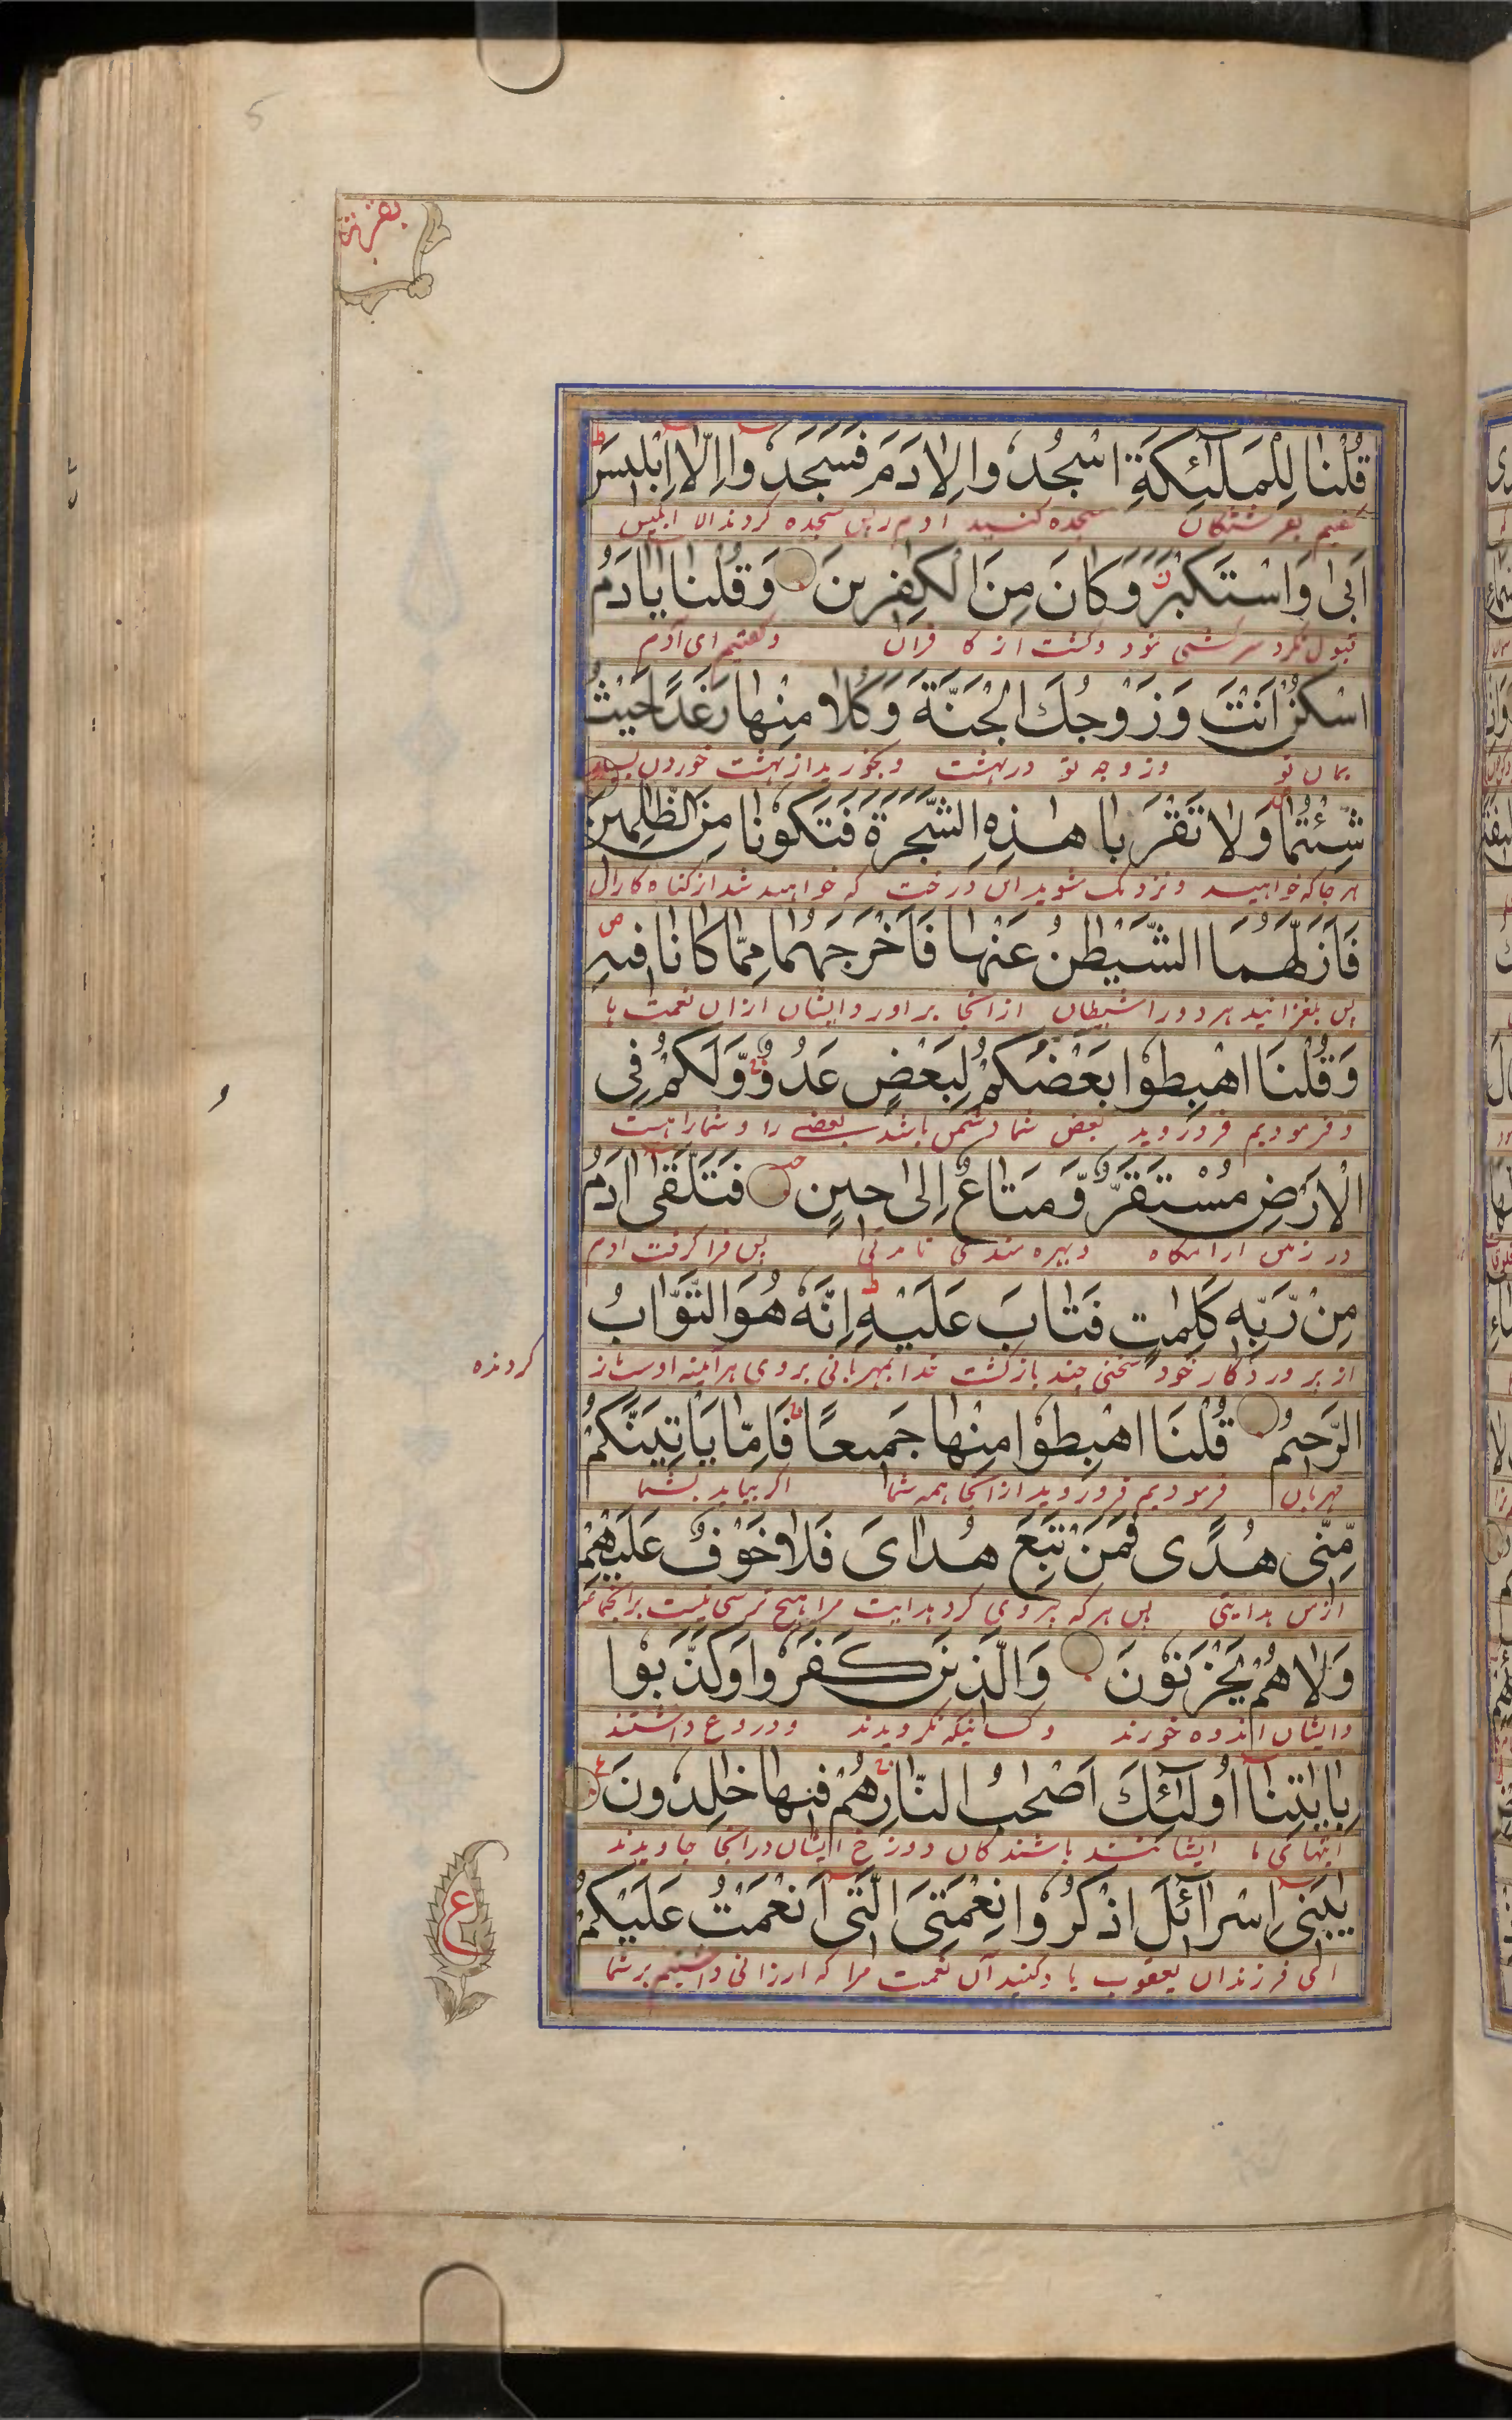 5
بقره
قُلْنَا لِلْمَلٰٓئِكَةِ اسْجُدُوا لِاٰدَمَ فَسَجَدُوا اِلَّا اِبْلِیسَ ط
گفتیم بفرشتگان سجده کنید ادم را پس سجده کردند الا ابلیس
اَبٰی وَاسْتَكْبَرَ وَكَانَ مِنَ الْكٰفِرِینَ وَقُلْنَا یٰاٰدَمُ
قبول نکرد سرکشی نمود و گشت از کافران و گفتیم ای آدم
اسْكُنْ اَنْتَ وَزَوْجُكَ الْجَنَّةَ وَكُلَا مِنْهَا رَغَدًا حَیْثُ
بمان تو و زوجه تو در بهشت و بخورید از بهشت خوردن بسیار
شِئْتُمَا وَلَا تَقْرَبَا هٰذِهِ الشَّجَرَةَ فَتَكُونَا مِنَ الظّٰلِمِینَ
هر جا که خواهید و نزدیک مشوید این درخت که خواهید شد از گناه کاران
فَاَزَلَّهُمَا الشَّیْطٰنُ عَنْهَا فَاَخْرَجَهُمَا مِمَّا كَانَا فِیهِ ص
پس بلغزانید هر دو را شیطان از انجا بر اورد ایشان از ان نعمت ها
وَقُلْنَا اهْبِطُوا بَعْضُكُمْ لِبَعْضٍ عَدُوٌّ وَلَكُمْ فِی
و فرمودیم فرو روید بعض شما دشمن باشد بعضے را و شما را هست
الْاَرْضِ مُسْتَقَرٌّ وَّمَتَاعٌ اِلٰی حِینٍ فَتَلَقّٰی اٰدَمُ
در زمین ارامگاه و بهره مندی تا مدتی پس فرا گرفت ادم
مِنْ رَّبِّهٖ كَلِمٰتٍ فَتَابَ عَلَیْهِ ط اِنَّهٗ هُوَ التَّوَّابُ
از پروردگار خود سخنی چند باز گشت خدا بمهربانی بر وی هر اینه اوست باز
گردنده
الرَّحِیمُ قُلْنَا اهْبِطُوا مِنْهَا جَمِیعًا فَاِمَّا یَاْتِیَنَّكُمْ
مهربان فرمودیم فرو روید از انجا همه شما اگر بیاید بشما
مِّنِّی هُدًی فَمَنْ تَبِعَ هُدَایَ فَلَا خَوْفٌ عَلَیْهِمْ
از من هدایتی پس هر که پیروی کرد هدایت مرا هیچ ترسی نیست
وَلَا هُمْ یَحْزَنُونَ وَالَّذِینَ كَفَرُوا وَكَذَّبُوا
و ایشان اندوه خورند و کسانیکه نگرویدند و دروغ داشتند
بِاٰیٰتِنَا اُولٰٓئِكَ اَصْحٰبُ النَّارِ هُمْ فِیهَا خٰلِدُونَ ع
ایتهای ما ایشانند باشندکان دوزخ ایشان در انجا جاویدند
یٰبَنِی اِسْرَآئِلَ اذْكُرُوا نِعْمَتِیَ الَّتِی اَنْعَمْتُ عَلَیْكُمْ
ای فرزندان یعقوب یاد کنید آن نعمت مرا که ارزانی داشتیم بر شما
ع